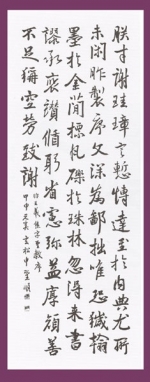 朕才謝珪璋言慙博達至於内典尤所
未閑昨製序文深為鄙拙唯恐穢翰
墨於金簡標瓦礫於珠林忽得来書
謬承褒讚循躬省慮彌益厚顔善
不足稱空勞致謝